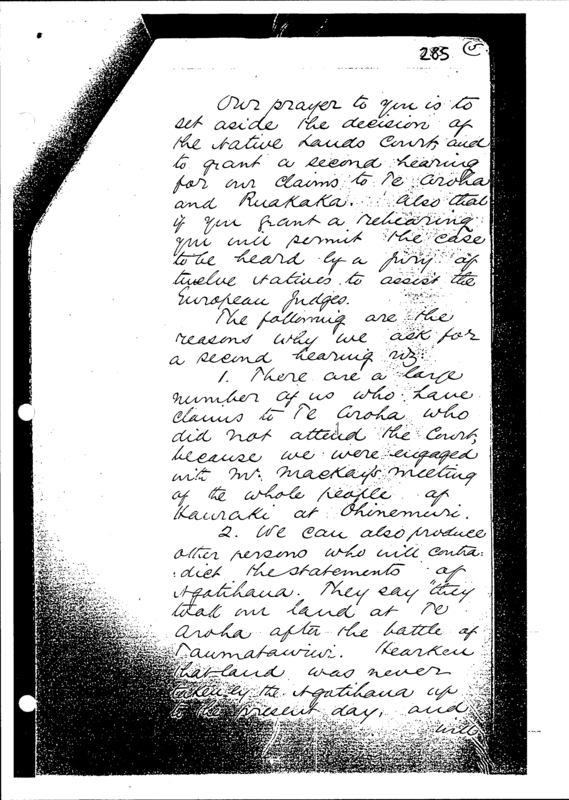 285 5
Our prayer to you is to
set aside the decision of
the Native Lands Court, and
to grant a second hearing
for our claims to Te Aroha
and Ruakaka. Also that
if you grant a rehearing
you will permit the case
to be heard by a jury of
twelve Natives to assist the
European Judges.
The following are the
reasons why we ask for
a second hearing viz.
1. There are a large
number of us who have
claims to Te Aroha who
did not attend the Court,
because we were engaged
with Mr. Mackay's meeting
of the whole people of
Hauraki at Ohinemuri.
2. We can also produce
other persons who will contra:
:dict the statements of
Ngatihaua. They say "they
took our land at Te
Aroha after the battle of
Taumatawiwi. Hearken
that land was never
taken by the Ngatihaua up
to the present day, and
will